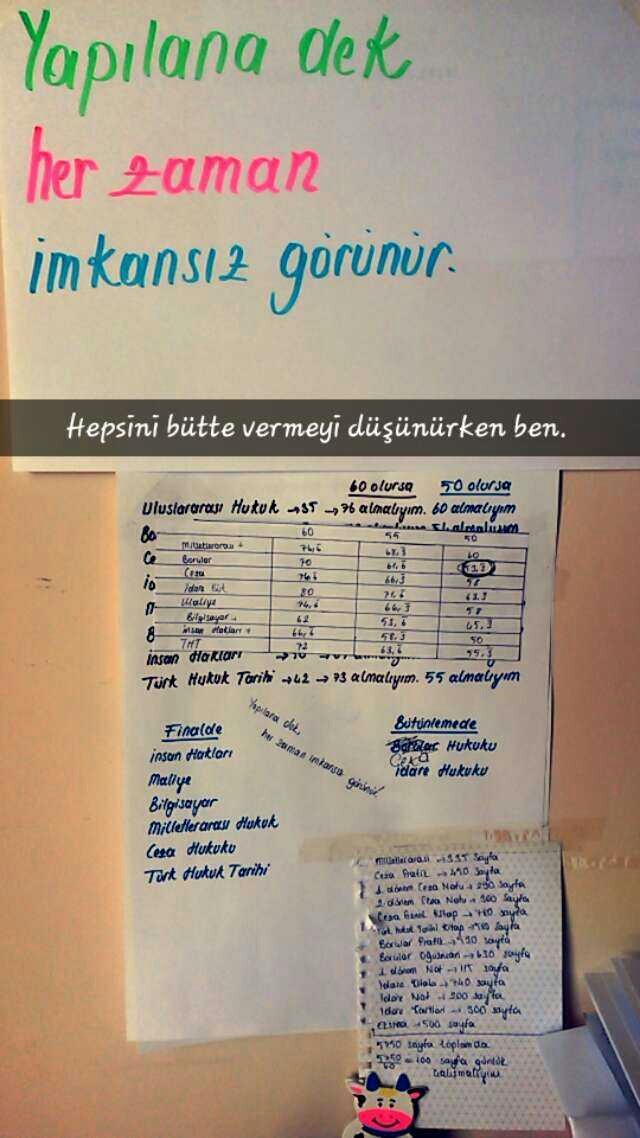 Yapılana dek
her zaman
imkansız görünür.
Hepsini bütte vermeyi düşünürken ben.
60 olursa 50 olursa
Uluslararası Hukuk → 35 → 76 almalıyım. 60 almalıyım
Bo 60 55 50
Milletlerarası 74,6 68,3 60
Ce Borçlar 70 61,6 53,3
Ceza 66,3 58
İdare 80 71,6 63.3
Maliye 74,6 66,3 58
Bilgisayar 62 53,6 45,3
B İnsan Hakları 66,6 58,3 50
THT 72 63,6 55,3
İnsan Hakları
Türk Hukuk Tarihi → 42 → 73 almalıyım. 55 almalıyım
Yapılana dek,
her zaman imkansız görünür!
Finalde
İnsan Hakları
Maliye
Bilgisayar
Milletlerarası Hukuk
Ceza Hukuku
Türk Hukuk Tarihi
Bütünlemede
Borçlar Hukuku
Ceza
İdare Hukuku
Milletlerarası → 335 sayfa
Ceza Pratik → 490 sayfa
1. dönem Ceza Notu → 290 sayfa
2. dönem Ceza Notu → 300 sayfa
Ceza Genel Kitap → 780 sayfa
Türk Hukuk Tarihi Kitap → sayfa
Borçlar Pratik → sayfa
Borçlar Oğuzman → 630 sayfa
1. dönem Not → 115 sayfa
İdare Kitabı → 740 sayfa
İdare Not → 200 sayfa
İdare → 300 sayfa
Ekstra → 500 sayfa
5750 sayfa toplamda
5750/60 = 100 sayfa günlük
çalışmalıyım